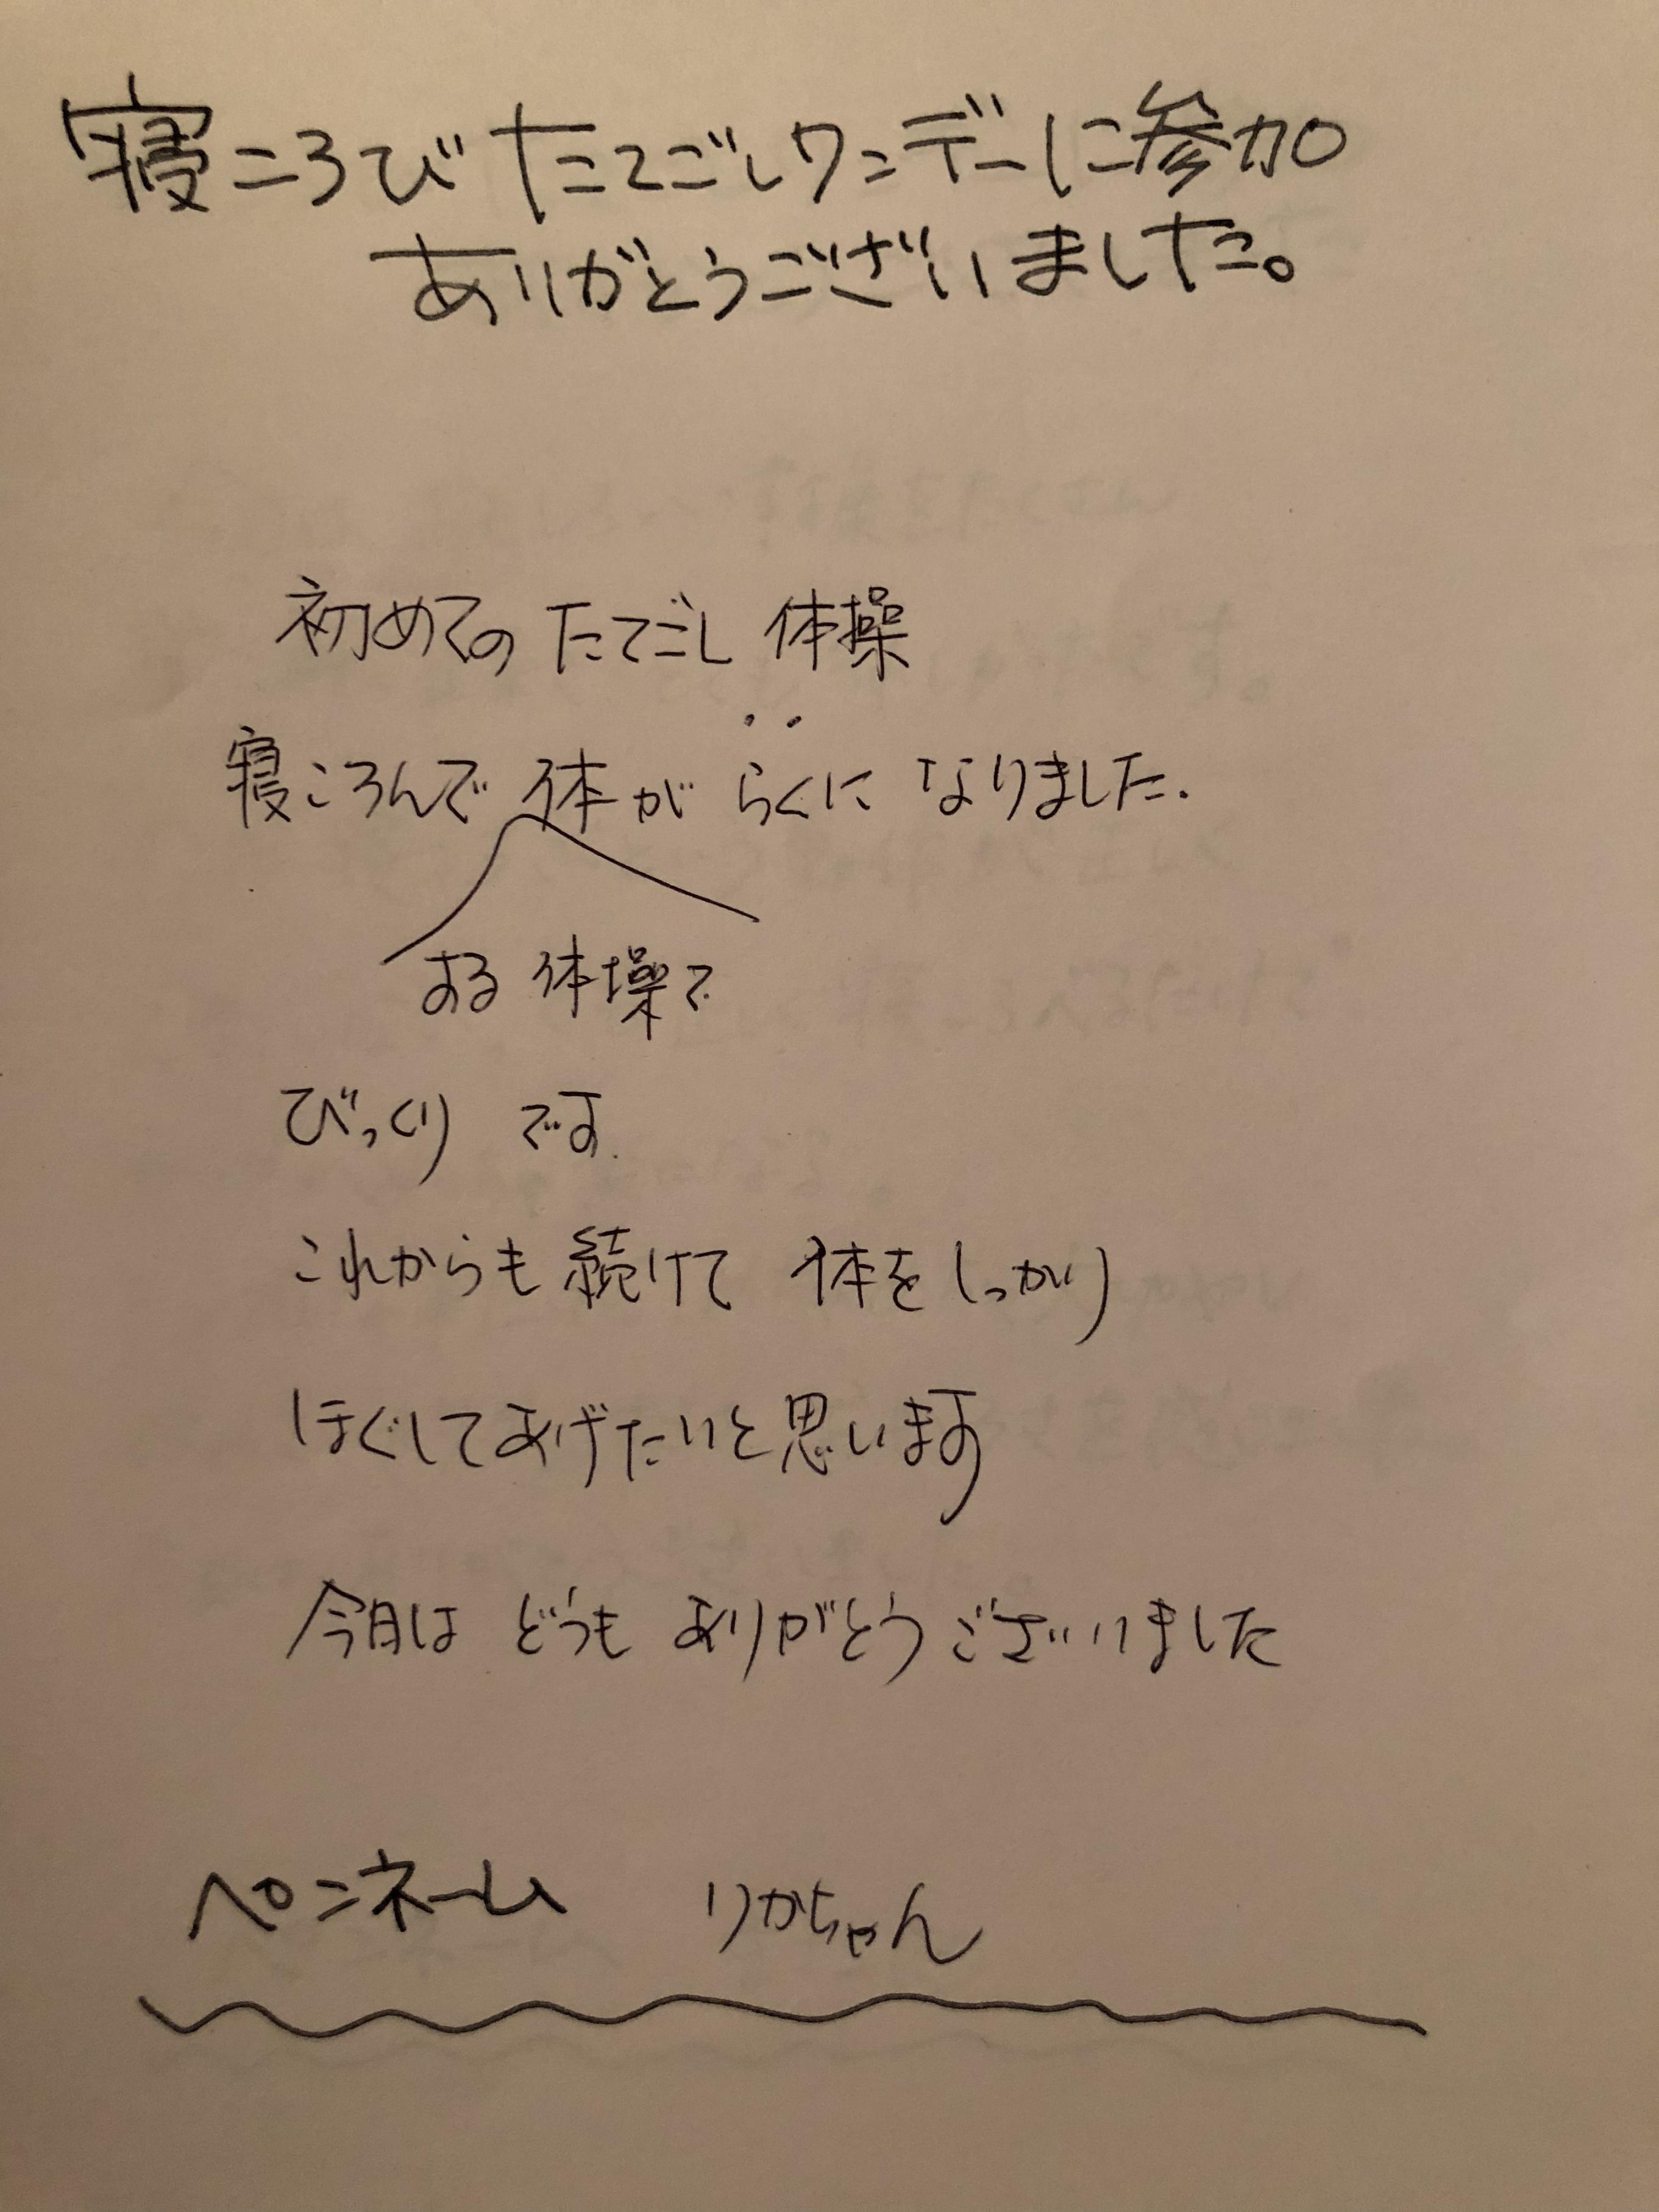 寝ころびたてごしワンデーに参加
ありがとうございました。
初めての たてごし 体操
寝ころんで 体が らくに なりました.
する 体操で
びっくり です.
これからも 続けて 体を しっかり
ほぐしてあげたいと思います
今日は どうも ありがとう ございました
ペンネーム りかちゃん